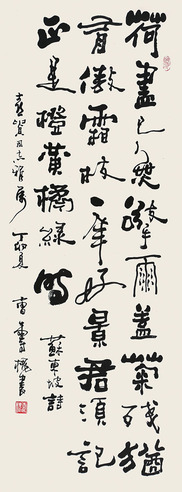 荷盡已無擎雨蓋菊残猶
有傲霜枝一年好景君須記
正是橙黄橘綠時 蘇東坡詩
同志雅屬 丁卯夏 曹 書